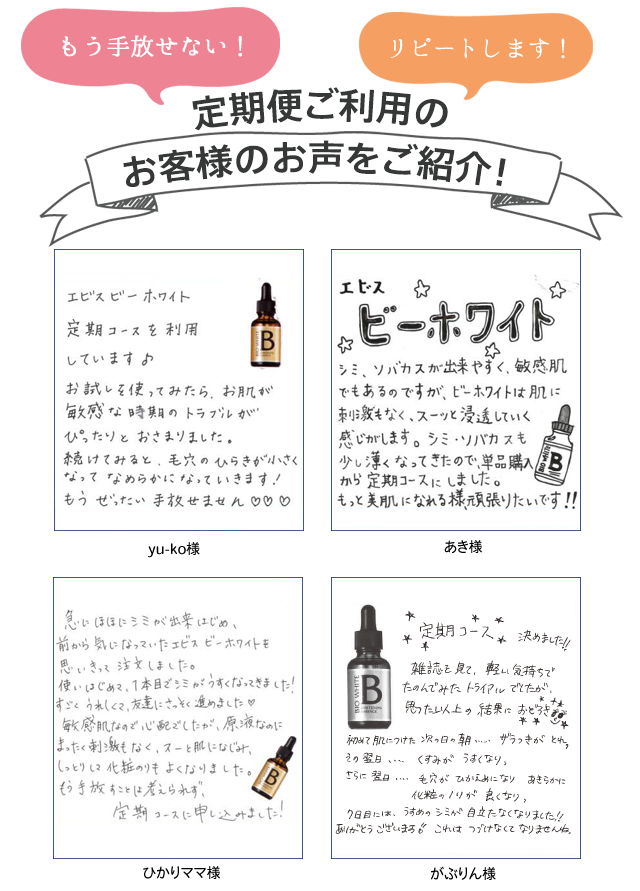 もう手放せない！
リピートします！
定期便ご利用の
お客様のお声をご紹介！
エビス ビー ホワイト
定期コースを利用
しています♪
お試しを使ってみたら、お肌が
敏感な時期のトラブルが
ぴったりと おさまりました。
続けてみると、毛穴のひらきが小さく
なって なめらかになっていきます！
もう ぜったい 手放せません♡♡♡
BIO WHITE
B
yu-ko様
エビス
ビーホワイト
シミ、ソバカスが出来やすく、敏感肌
でもあるのですが、ビーホワイトは肌に
刺激もなく、スーッと浸透していく
感じがします。シミ・ソバカスも
少し薄くなってきたので、単品購入
から定期コースにしました。
もっと美肌になれる様、頑張りたいです!!
BIO WHITE
B
あき様
急にほほにシミが出来はじめ、
前から気になっていたエビス ビーホワイトを
思いきって 注文しました。
使いはじめて、1本目でシミがうすくなってきました！
すごくうれしくて、友達にさっそく進めました♡
敏感肌なので心配でしたが、原液なのに
まったく刺激もなく、スーと肌になじみ、
しっとりして化粧のりもよくなりました。
もう手放すことは考えられず、
定期コースに申し込みました！
BIO WHITE
B
ひかりママ様
定期コース 決めました!!
雑誌を見て、軽い気持ちで
たのんでみたトライアルでしたが、
思った以上の結果におどろき
初めて肌につけた次の日の朝‥‥ ザラつきがとれ、
その翌日‥‥ くすみがうすくなり、
さらに翌日‥‥ 毛穴がひかえめになり あきらかに
化粧のノリが良くなり、
7日目には、うすめのシミが目立たなくなりました!!
ありがとうございます!! これは つづけなくてなりませんね。
BIO WHITE
B
WHITENING
ESSENCE
がぶりん様